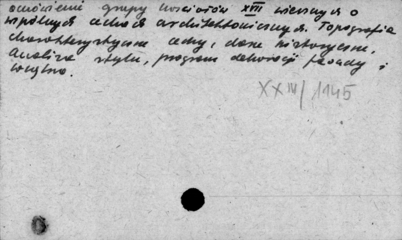 omówienie grupy kościołów XIII wiecznych o
wspólnych cechach architektonicznych. Topografia
charakterystyczne cechy, dane historyczne,
analiza stylu, program dekoracji fasady i
wnętrza.
XXIV/1145